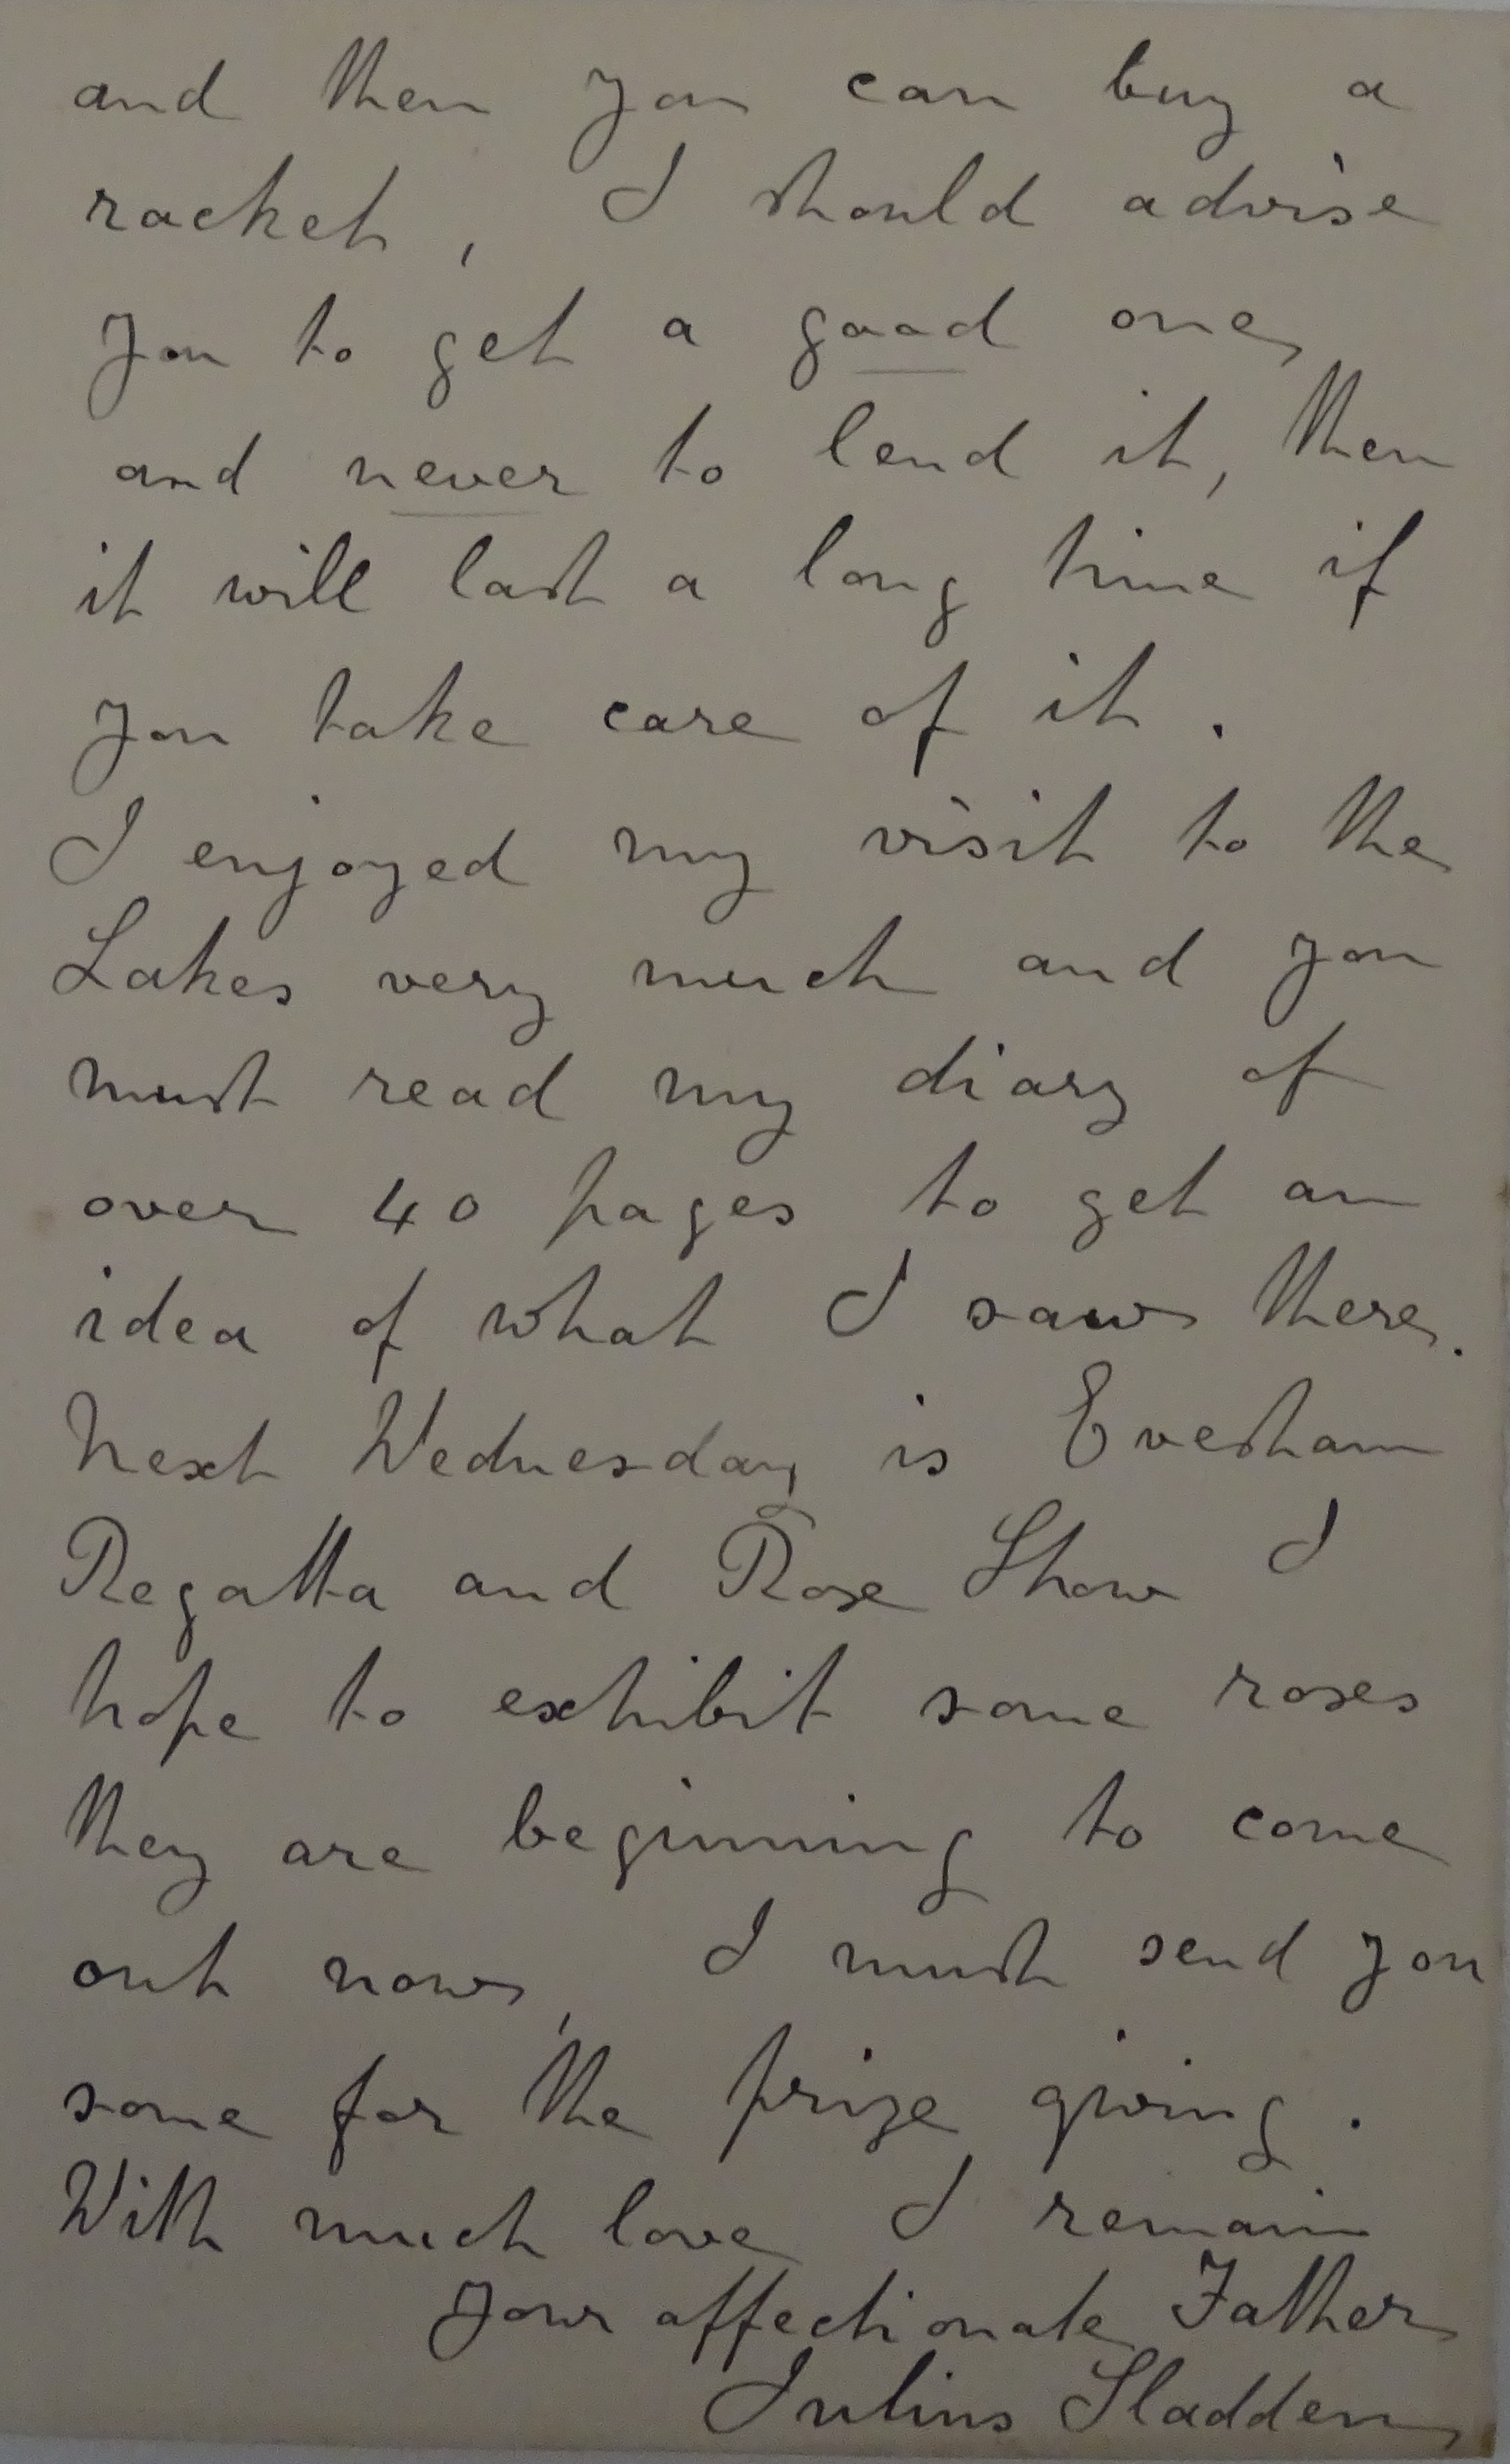 and then you can buy a
racket, I should advise
you to get a good one
and never to lend it, then
it will last a long time if
you take care of it.
I enjoyed my visit to the
Lakes very much and you
must read my diary of
over 40 pages to get an
idea of what I saw there.
Next Wednesday is Evesham
Regatta and Rose Show I
hope to exhibit some roses
they are beginning to come
out now, I must send you
some for the prize giving.
With much love I remain
Your affectionate Father
Julius Sladden